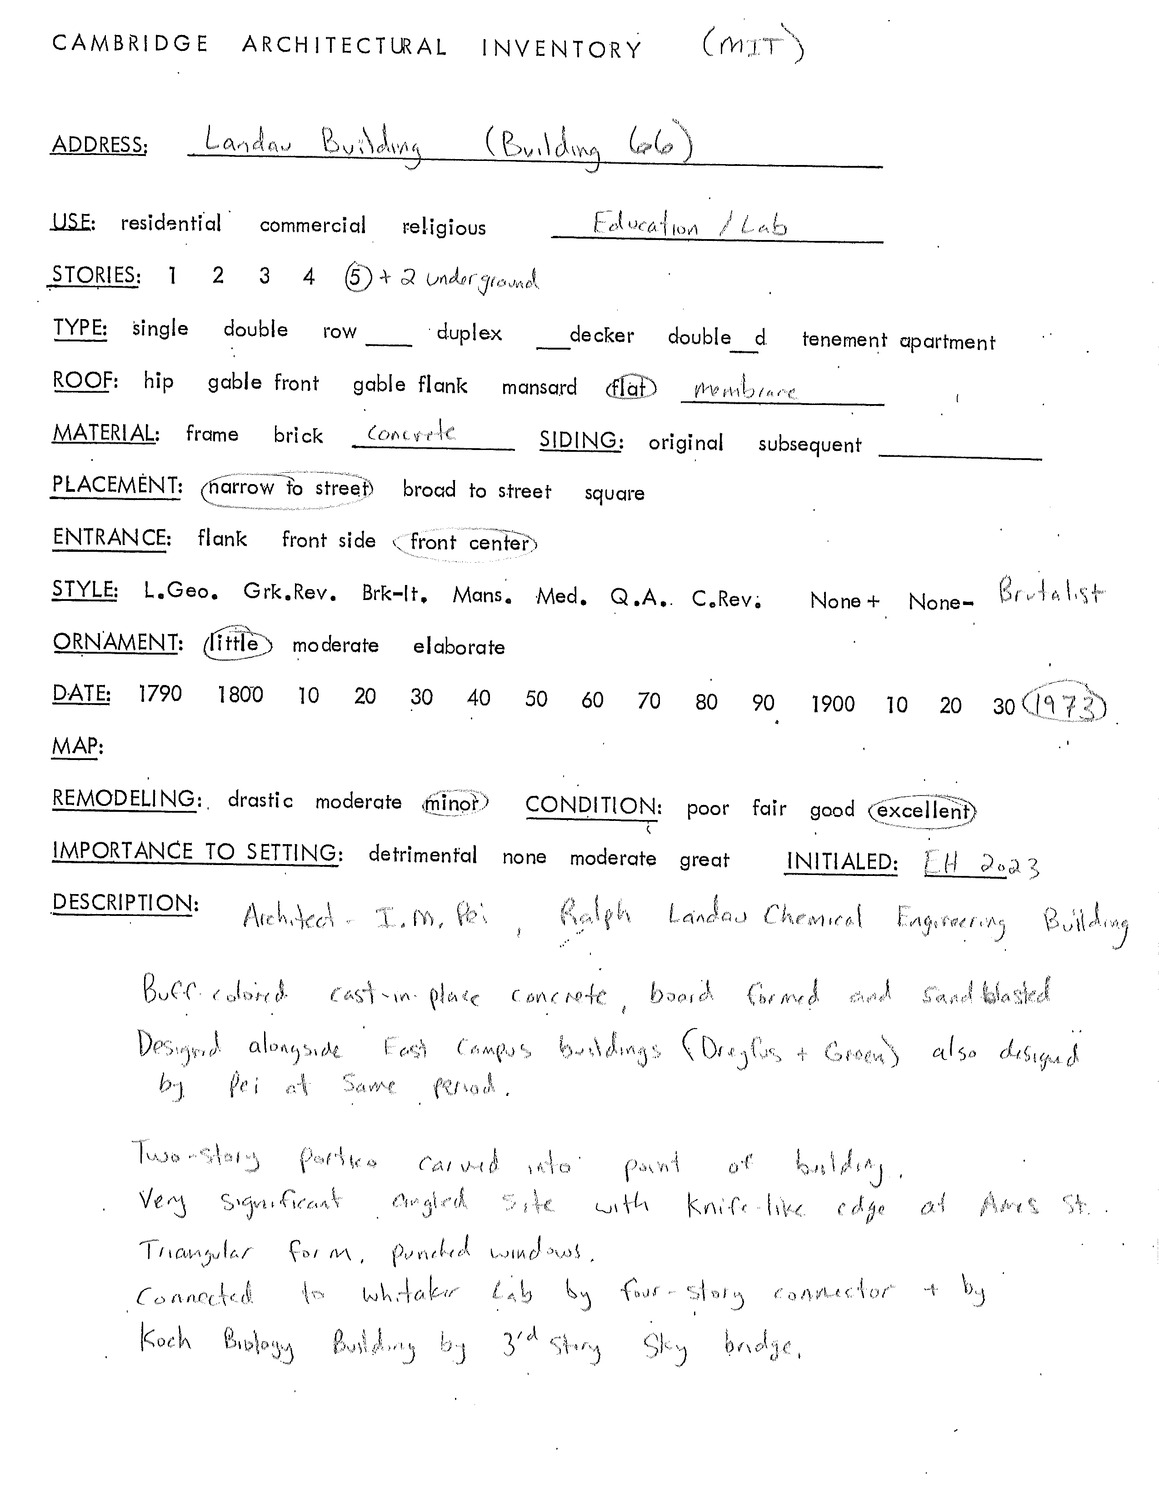 CAMBRIDGE ARCHITECTURAL INVENTORY (MIT)
ADDRESS: Landau Building (Building 66)
USE: residential commercial religious Education / Lab
STORIES: 1 2 3 4 5 + 2 underground
TYPE: single double row ___ duplex ___decker double__d tenement apartment
ROOF: hip gable front gable flank mansard flat membrane
MATERIAL: frame brick concrete SIDING: original subsequent ___
PLACEMENT: narrow to street broad to street square
ENTRANCE: flank front side front center
STYLE: L.Geo. Grk.Rev. Brk-It. Mans. Med. Q.A. C.Rev. None+ None- Brutalist
ORNAMENT: little moderate elaborate
DATE: 1790 1800 10 20 30 40 50 60 70 80 90 1900 10 20 30 1973
MAP:
REMODELING: drastic moderate minor CONDITION: poor fair good excellent
IMPORTANCE TO SETTING: detrimental none moderate great INITIALED: EH 2023
DESCRIPTION: Architect - I.M. Pei, Ralph Landau Chemical Engineering Building
Buff-colored cast-in-place concrete, board formed and sandblasted
Designed alongside East Campus buildings (Dreyfus + Green) also designed
by Pei at same period.
Two-story portico carved into point of building.
Very significant angled site with knife-like edge at Ames St.
Triangular form, punched windows.
Connected to Whitaker Lab by four-story connector + by
Koch Biology Building by 3rd story sky bridge.